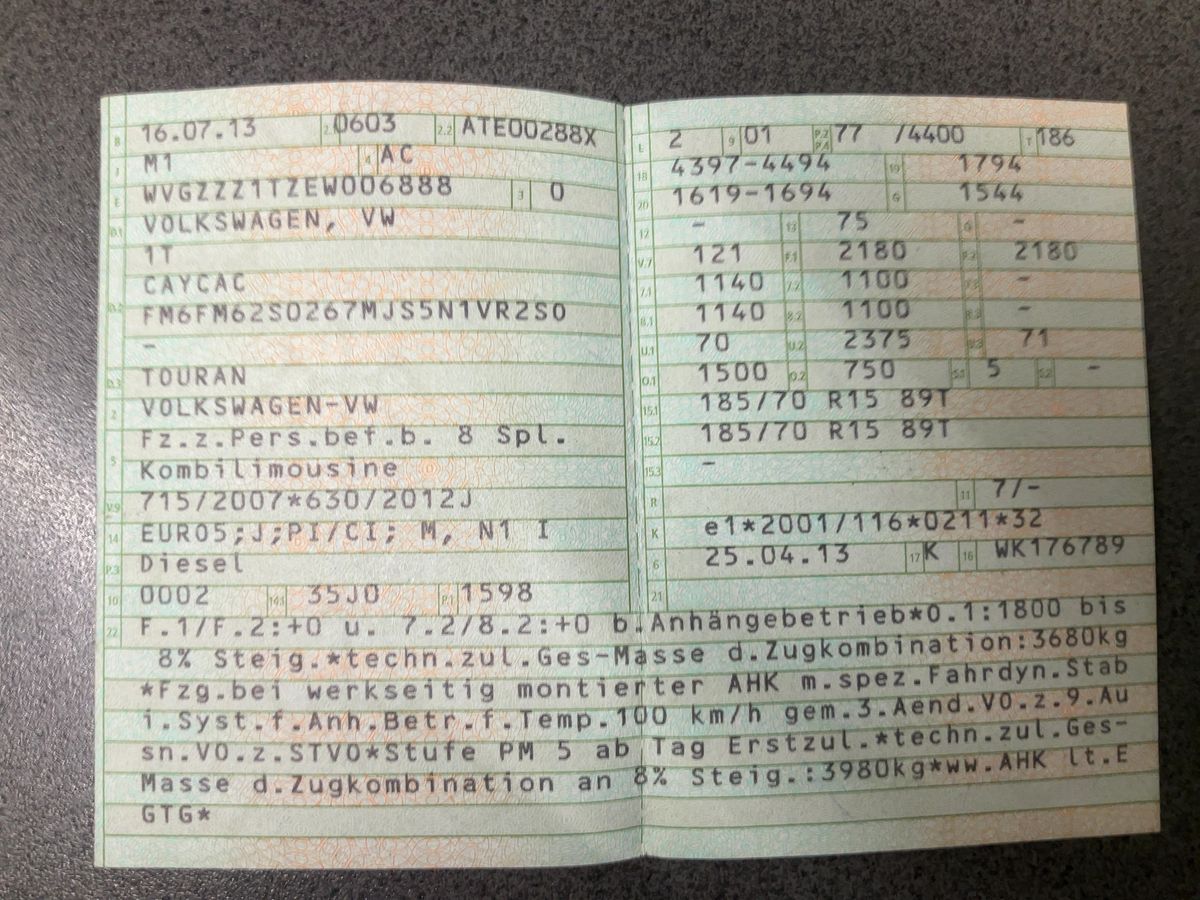 B 16.07.13 2.1 0603 2.2 ATE00288X
J M1 4 AC
E WVGZZZ1TZEW006888 3 0
D.1 VOLKSWAGEN, VW
1T
CAYCAC
D.2 FM6FM62S0267MJS5N1VR2S0
–
D.3 TOURAN
2 VOLKSWAGEN-VW
Fz.z.Pers.bef.b. 8 Spl.
5 Kombilimousine
V.9 715/2007*630/2012J
14 EURO5;J;PI/CI; M, N1 I
P.3 Diesel
10 0002 14.1 35J0 P.1 1598
L 2 9 01 P.2 P.4 77 /4400 T 186
18 4397-4494 19 1794
20 1619-1694 G 1544
12 – 13 75 Q –
V.7 121 F.1 2180 F.2 2180
7.1 1140 7.2 1100 7.3 –
8.1 1140 8.2 1100 8.3 –
U.1 70 U.2 2375 U.3 71
O.1 1500 O.2 750 S.1 5 S.2 –
15.1 185/70 R15 89T
15.2 185/70 R15 89T
15.3 –
R 11 7/-
K e1*2001/116*0211*32
6 25.04.13 17 K 16 WK176789
21
22 F.1/F.2:+0 u. 7.2/8.2:+0 b.Anhängebetrieb*O.1:1800 bis
8% Steig.*techn.zul.Ges-Masse d.Zugkombination:3680kg
*Fzg.bei werkseitig montierter AHK m.spez.Fahrdyn.Stab
i.Syst.f.Anh.Betr.f.Temp.100 km/h gem.3.Aend.VO.z.9.Au
sn.VO.z.STVO*Stufe PM 5 ab Tag Erstzul.*techn.zul.Ges-
Masse d.Zugkombination an 8% Steig.:3980kg*ww.AHK lt.E
GTG*